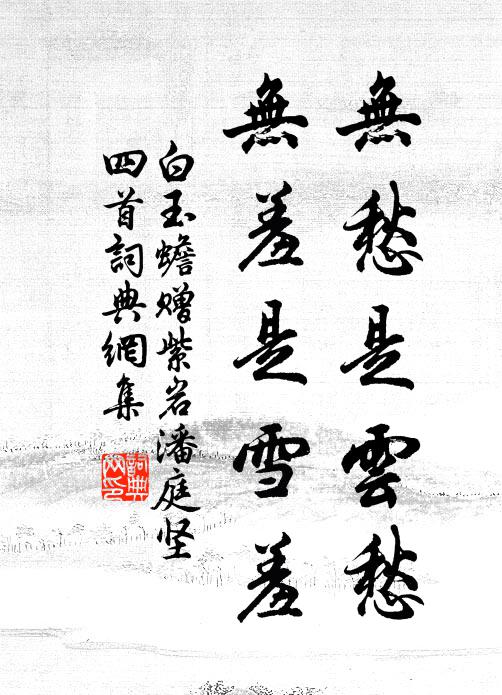 無愁是雲愁
無羞是雪羞
白玉蟾贈紫岩潘庭坚
四首詞典網集
詞典網印